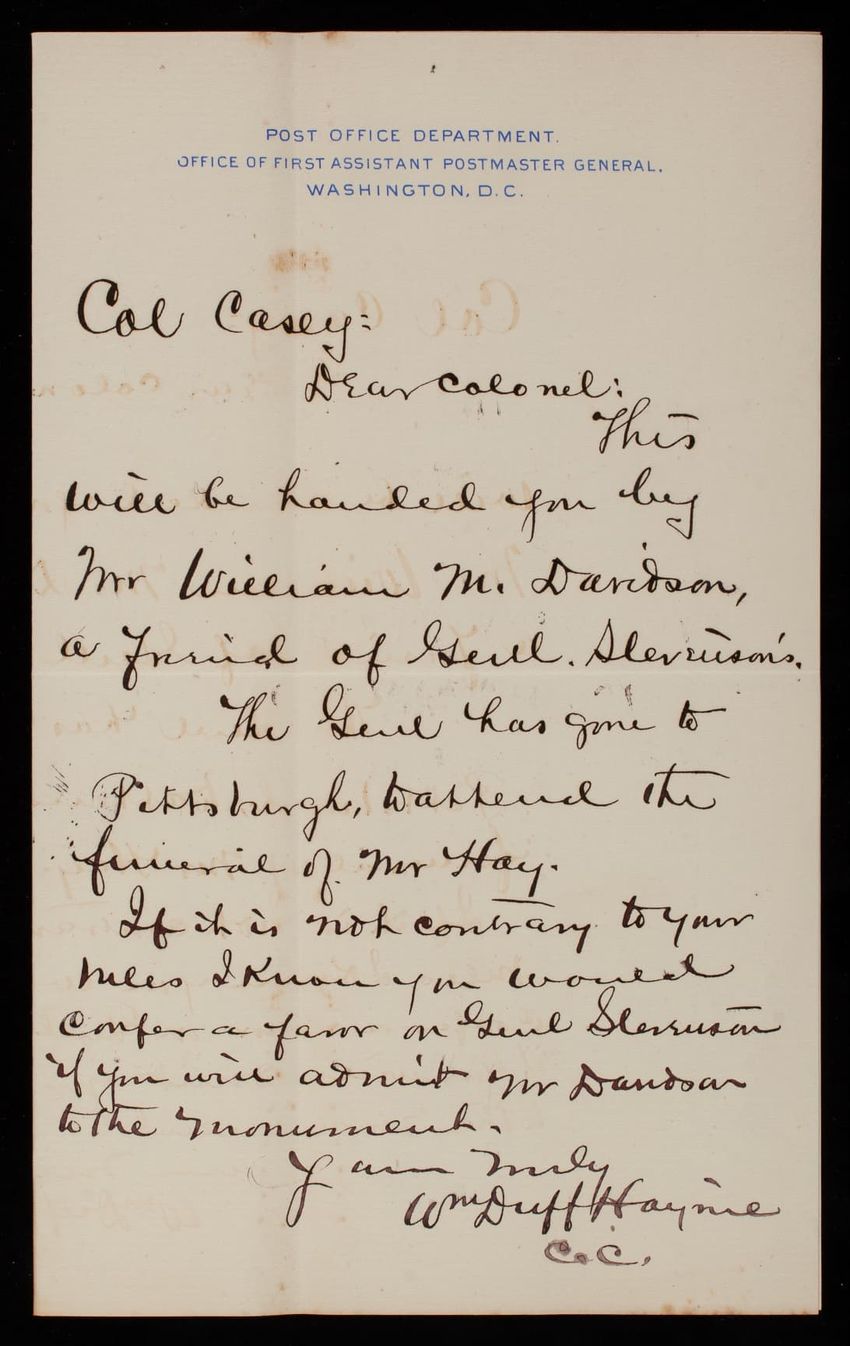 POST OFFICE DEPARTMENT.
OFFICE OF FIRST ASSISTANT POSTMASTER GENERAL,
WASHINGTON, D. C.
Col Casey:
Dear Colonel:
This
will be handed you by
Mr William M. Davidson,
a friend of Genl. Stevenson's.
The Genl has gone to
Pittsburgh, to attend the
funeral of Mr Hay.
If it is not contrary to your
rules I know you would
confer a favor on Genl Stevenson
if you will admit Mr Davidson
to the monument.
Yours truly
Wm Duff Haynie
C.C.